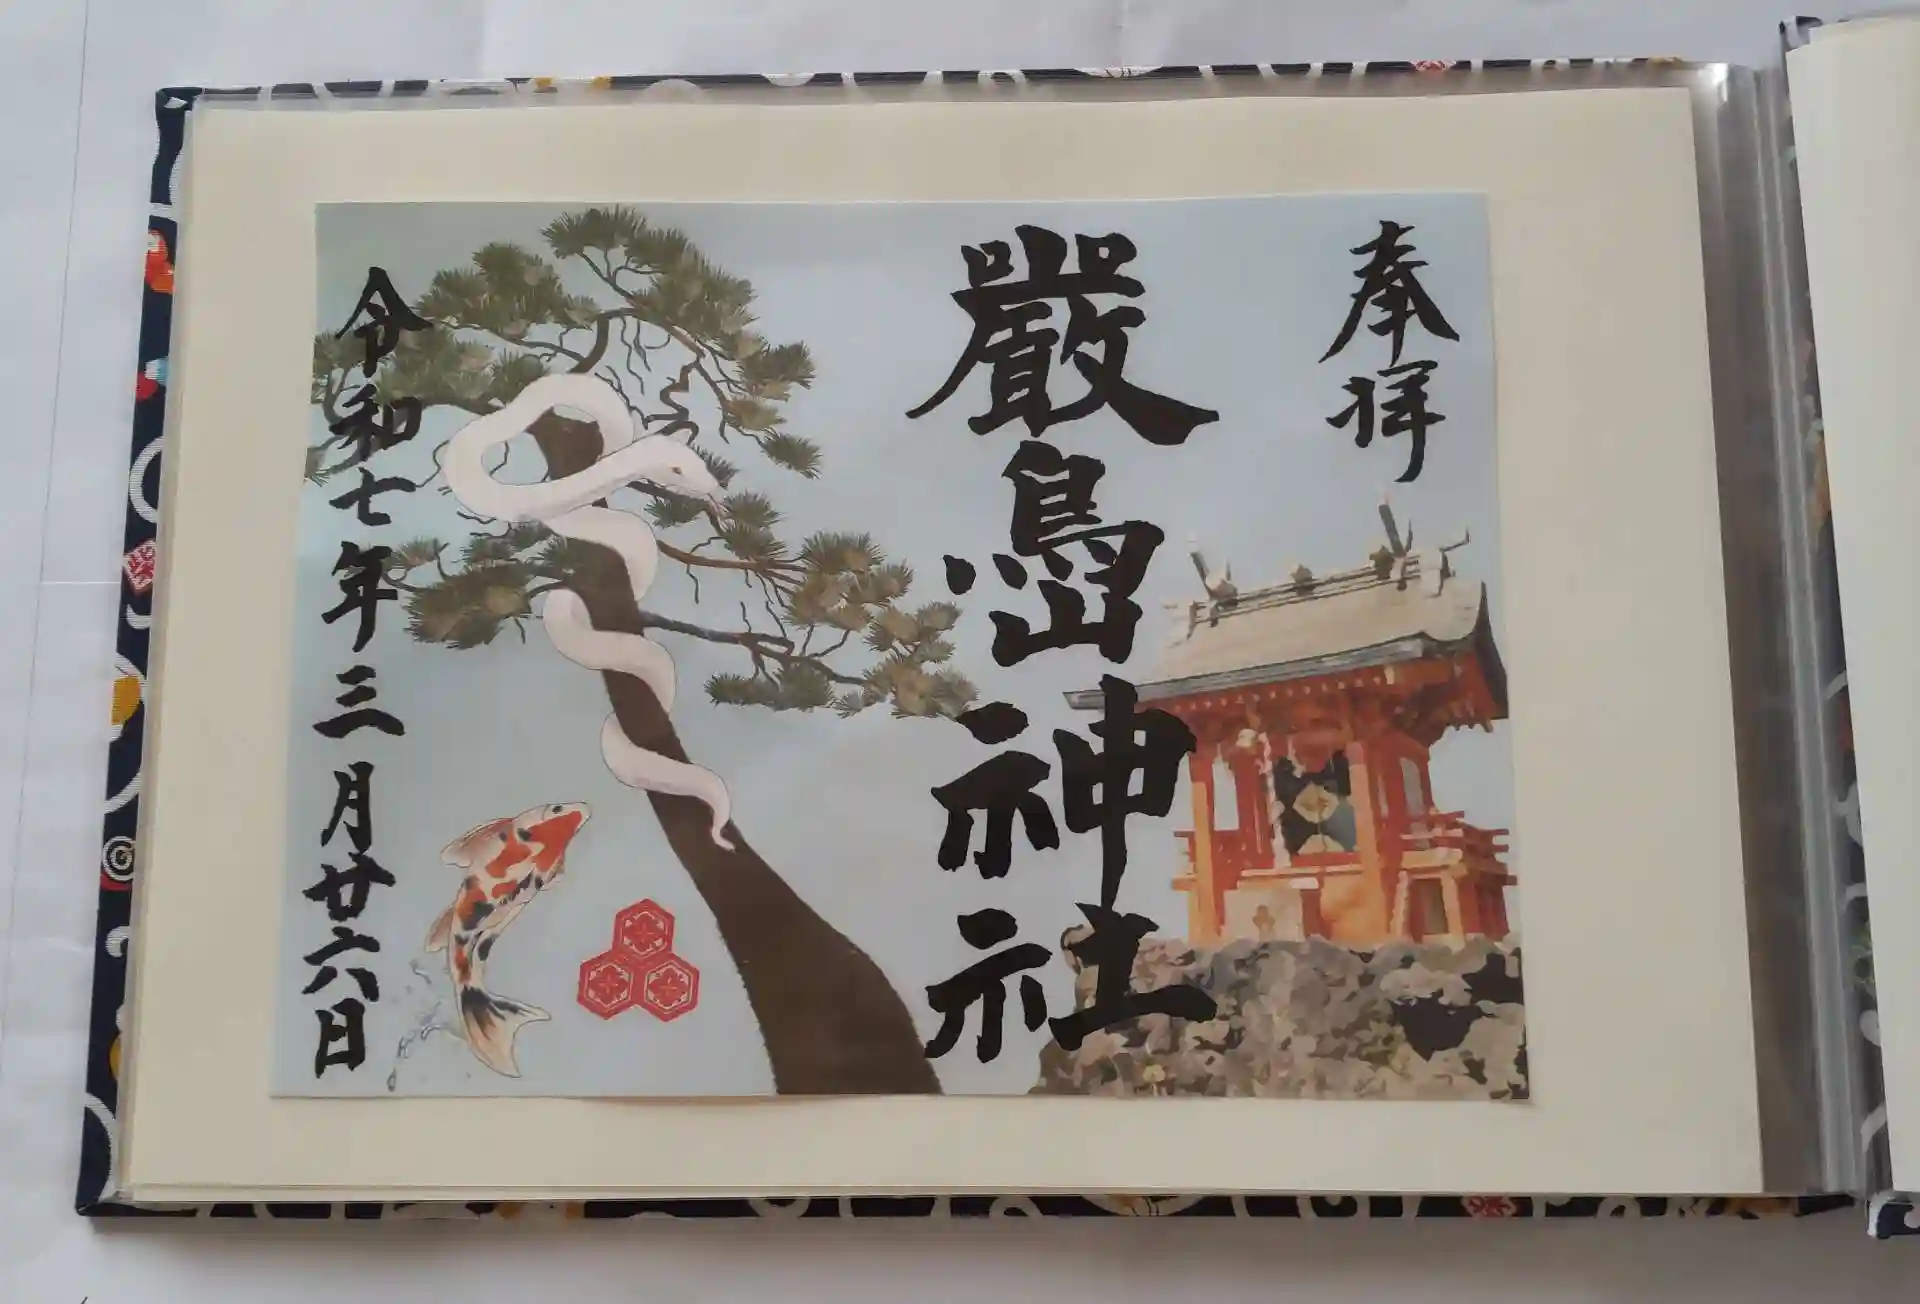 奉拝
嚴嶌神社
令和七年三月廿六日